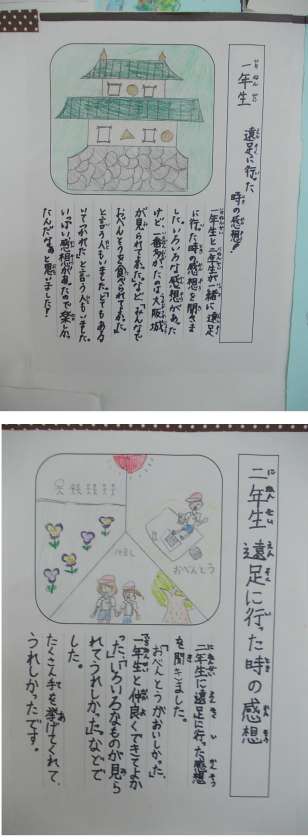 一年生 遠足に行った時の感想!
一年生と二年生が一緒に遠足
に行った時の感想を聞きま
した。いろいろな感想があった
けど、一番多かったのは大阪城
が見られてよかった。など「みんなで
おべんとうを食べられてよかった。」
と言う人もいました。でも
いて「つかれた」と言う人もいました。
いっぱい感想があったので楽しか
たんだなぁと思いました!
二年生 遠足に行った時の感想
おべんとう
なかよし
二年生に遠足に行った感想
を聞きました。
「おべんとうがおいしかった」
「一年生と仲良くできてよか
った」「いろいろなものが見ら
れてうれしかった」などで
した。
たくさん手を挙げてくれて、
うれしかったです。